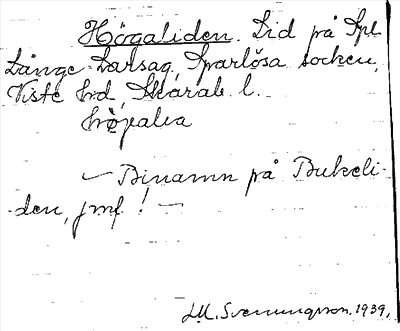 Högaliden. Lid på Spl.
Långe Larsag, Sparlösa socken,
Viste hrd, Skarab. l.
— Binamn på Bukeli-
den, jmf! —
L.M. Svenungsson. 1939.